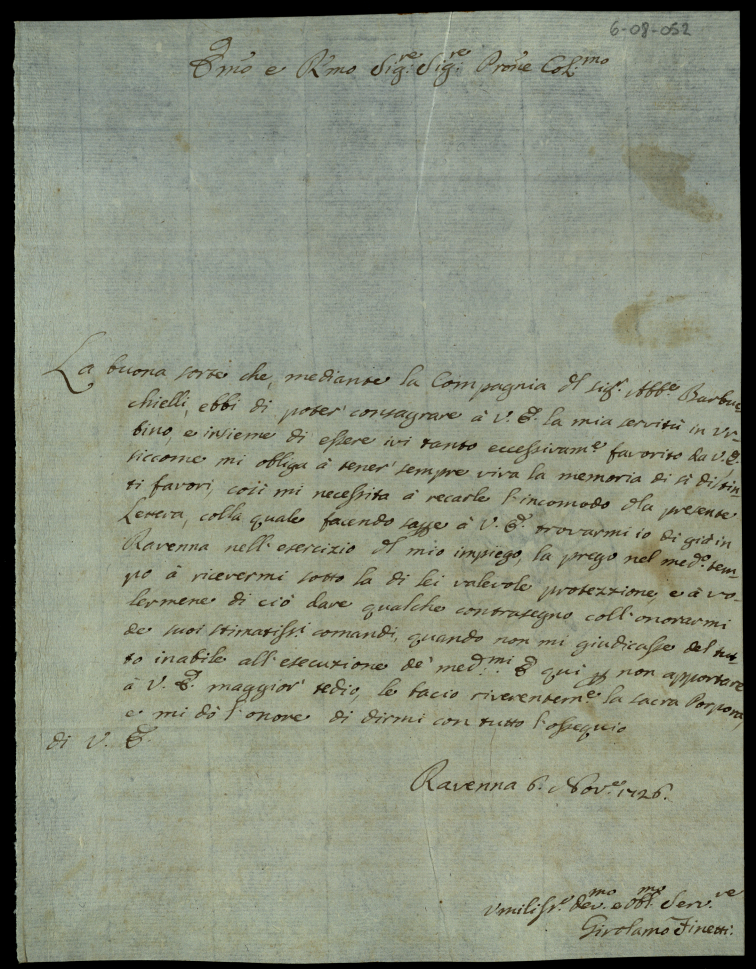 6-08-052
E.mo e R.mo Sig.re Sig.re Prōne Col.mo
La buona sorte che, mediante la Compagnia dl sig.r Abb.e Barbuc=
chielli, ebbi di poter consagrare à V. E. la mia servitù in Ur=
bino, e insieme di essere ivi tanto eccessivam.e favorito da V. E.,
siccome mi obliga à tener sempre viva la memoria di sì distin=
ti favori, così mi necessita à recarle l'incomodo dla presente
Lettera, colla quale facendo sapere à V. E. trovarmi io di già in
Ravenna nell'esercizio dl mio impiego, la prego nel med.o tem=
po à ricevermi sotto la di lei valevole protezzione, e à vo=
lermene di ciò dare qualche contrasegno, coll'onorarmi
de suoi stimatiss.i comandi, quando non mi giudicasse del tut=
to inabile all'esecuzione de' med.mi. E qui p non apportare
à V. E. maggior tedio, le bacio riverentem.e la sacra Porpora,
e mi dò l'onore di dirmi con tutto l'ossequio
di V. E.
Ravenna 6. Nov.e 1726.
Umiliss.o dev.mo e obl.mo Serv.re
Girolamo Finetti.